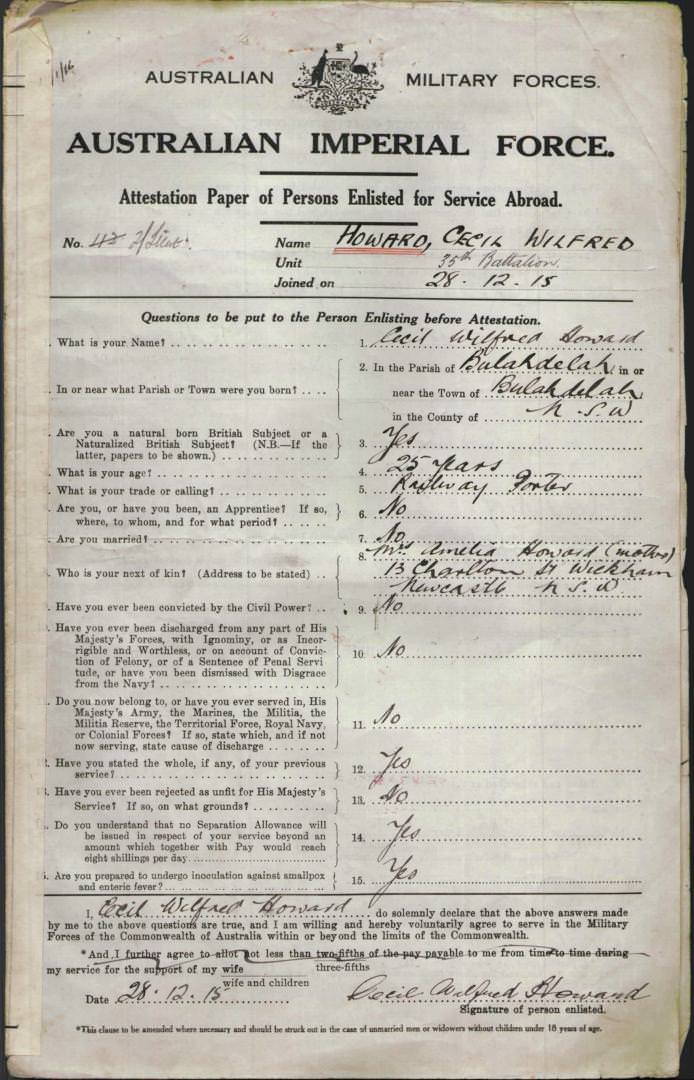 1/16
AUSTRALIAN MILITARY FORCES.
AUSTRALIAN IMPERIAL FORCE.
Attestation Paper of Persons Enlisted for Service Abroad.
No. 2/Lieut. Name HOWARD, CECIL WILFRED
Unit 35th Battalion
Joined on 28.12.15
Questions to be put to the Person Enlisting before Attestation.
. What is your Name? 1. Cecil Wilfred Howard
2. In the Parish of Bulahdelah in or
. In or near what Parish or Town were you born? near the Town of Bulahdelah
in the County of N.S.W
. Are you a natural born British Subject or a
Naturalized British Subject? (N.B.—If the 3. Yes
latter, papers to be shown.)
. What is your age? 4. 25 years
. What is your trade or calling? 5. Railway Porter
. Are you, or have you been, an Apprentice? If so,
where, to whom, and for what period? 6. No
. Are you married? 7. No
8. Mrs Amelia Howard (mother)
. Who is your next of kin? (Address to be stated) 13 Charlton St Wickham
Newcastle N.S.W
. Have you ever been convicted by the Civil Power? 9. No
. Have you ever been discharged from any part of His
Majesty's Forces, with Ignominy, or as Incor-
rigible and Worthless, or on account of Convic-
tion of Felony, or of a Sentence of Penal Servi 10. No
tude, or have you been dismissed with Disgrace
from the Navy?
. Do you now belong to, or have you ever served in, His
Majesty's Army, the Marines, the Militia, the
Militia Reserve, the Territorial Force, Royal Navy, 11. No
or Colonial Forces? If so, state which, and if not
now serving, state cause of discharge
. Have you stated the whole, if any, of your previous
service? 12. Yes
. Have you ever been rejected as unfit for His Majesty's
Service? If so, on what grounds? 13. No
. Do you understand that no Separation Allowance will
be issued in respect of your service beyond an
amount which together with Pay would reach 14. Yes
eight shillings per day
. Are you prepared to undergo inoculation against smallpox
and enteric fever? 15. Yes
I, Cecil Wilfred Howard do solemnly declare that the above answers made
by me to the above questions are true, and I am willing and hereby voluntarily agree to serve in the Military
Forces of the Commonwealth of Australia within or beyond the limits of the Commonwealth.
*And I further agree to allot not less than two-fifths of the pay payable to me from time to time during
three-fifths
my service for the support of my wife
wife and children
Date 28.12.15 Cecil Wilfred Howard
Signature of person enlisted.
*This clause to be amended where necessary and should be struck out in the case of unmarried men or widowers without children under 18 years of age.